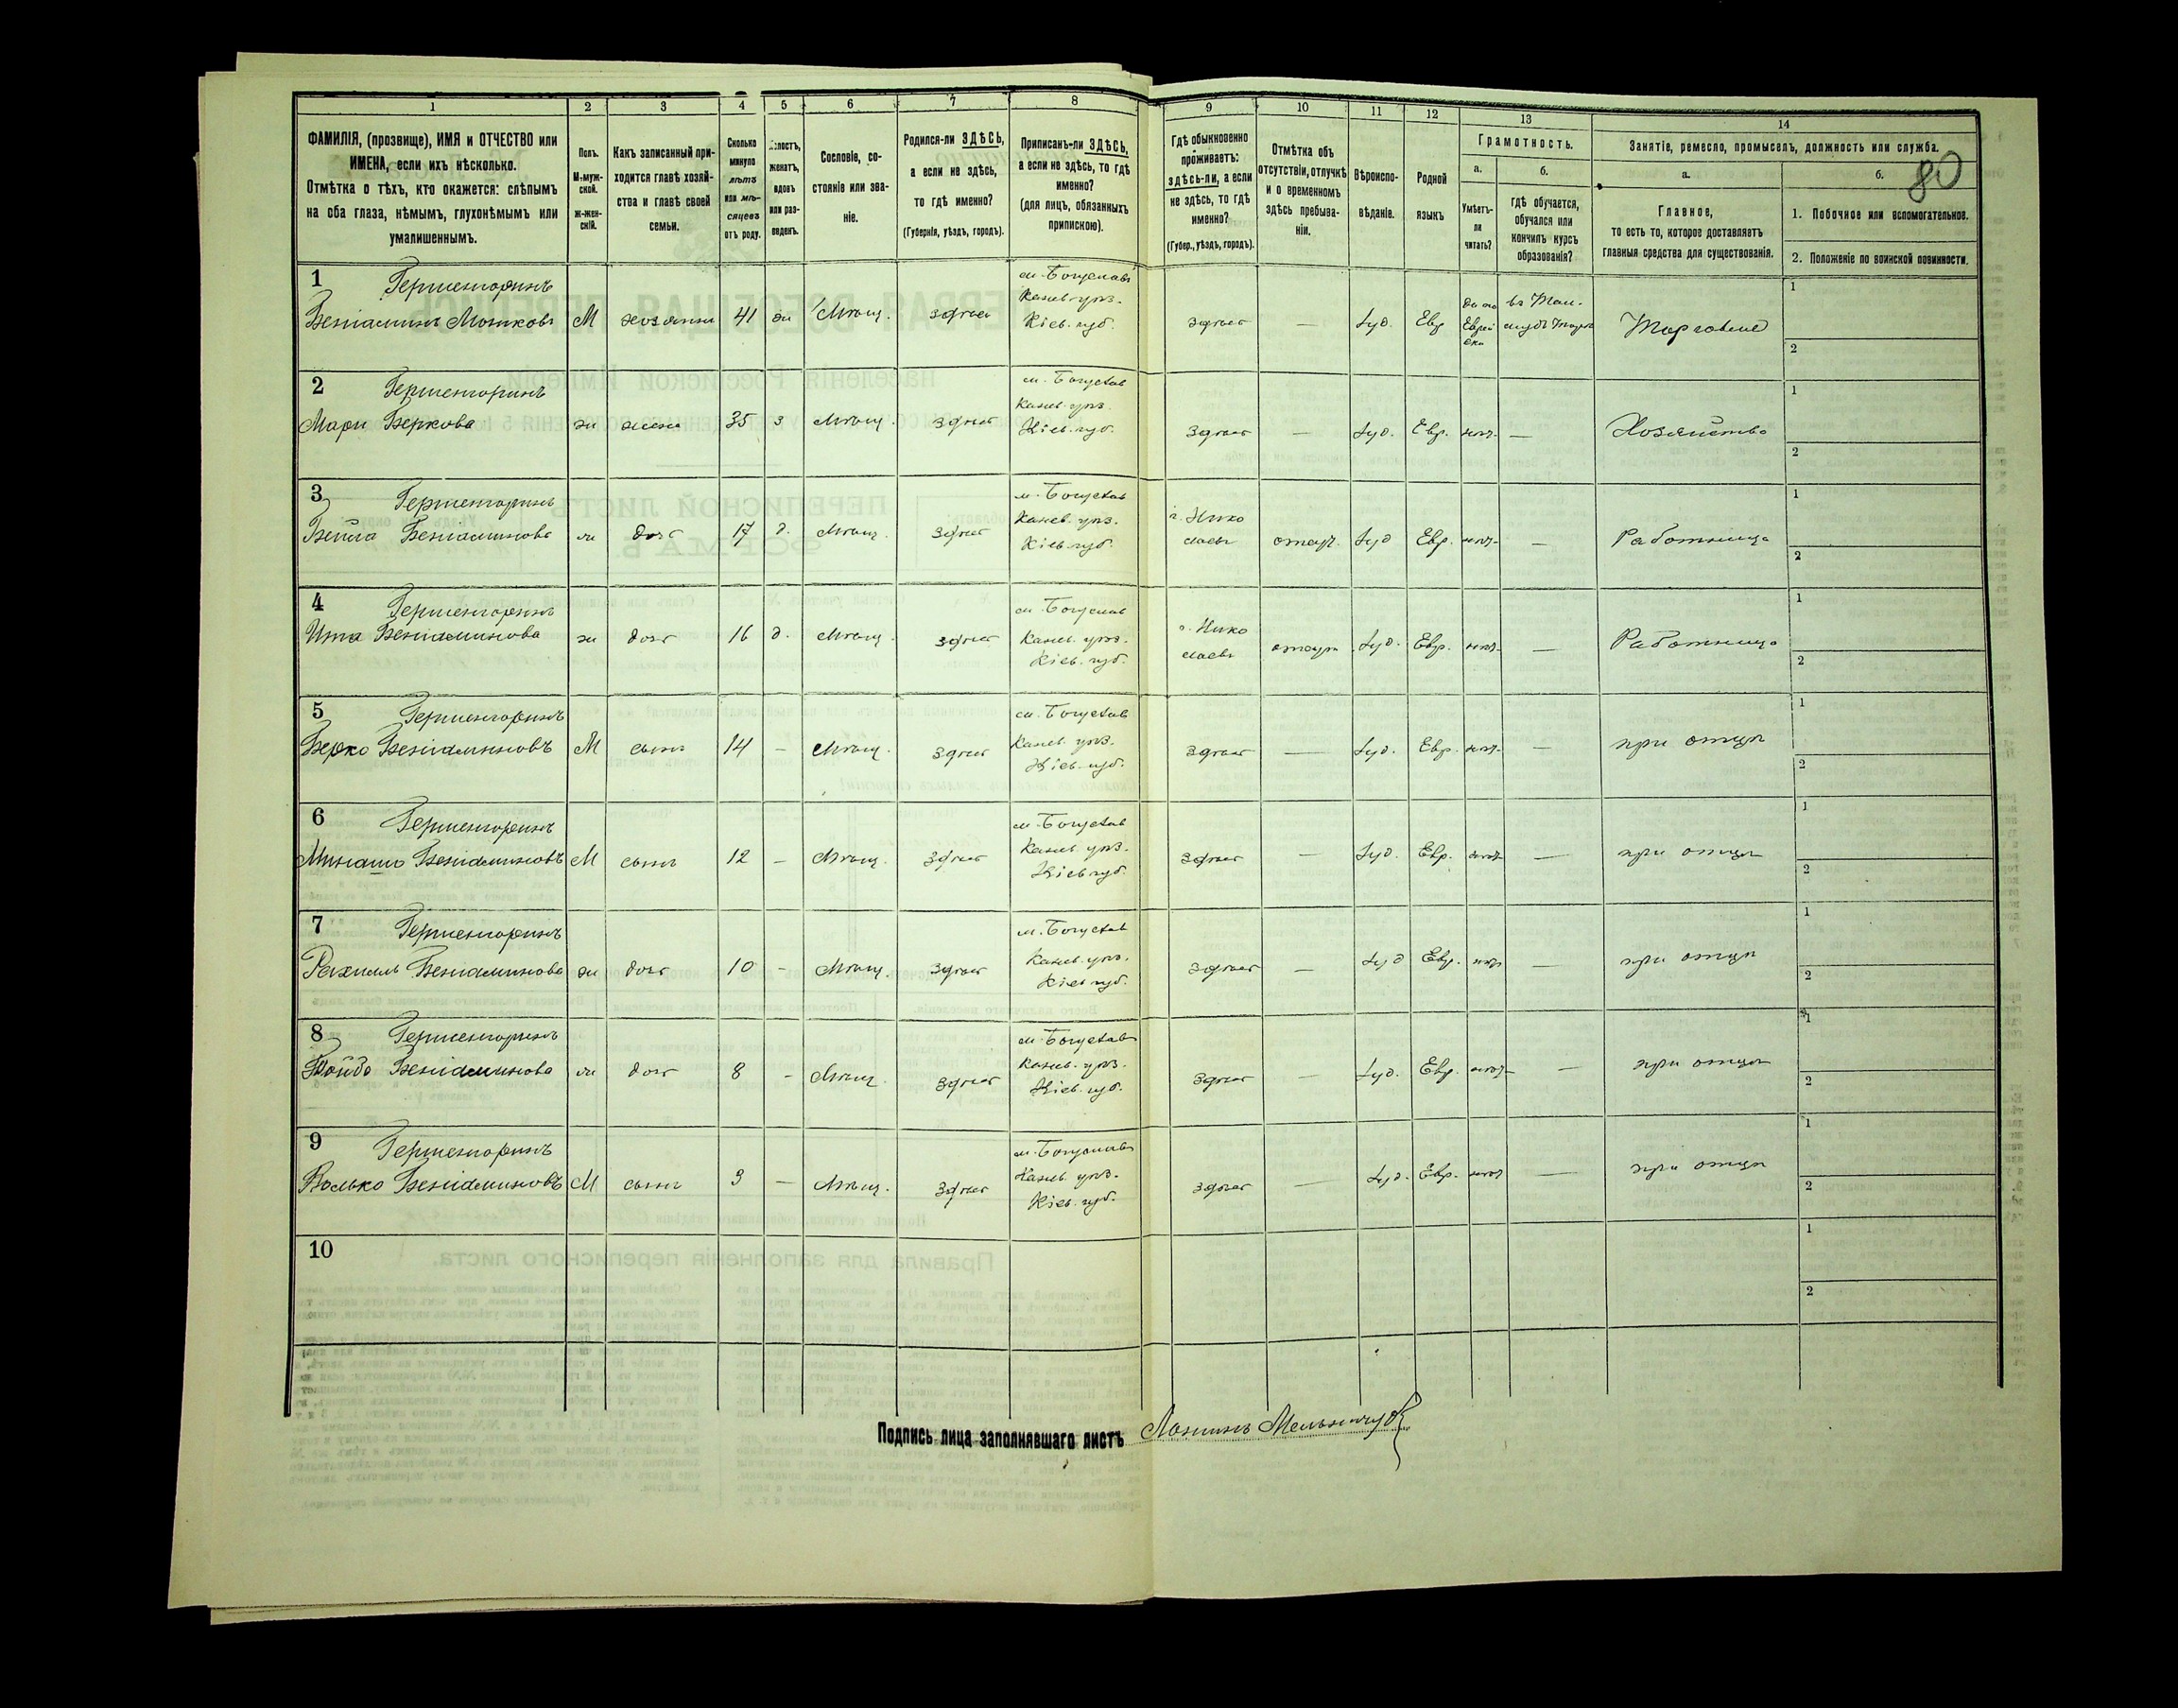 1 2 3 4 5 6 7 8 9 10 11 12 13 14
ФАМИЛІЯ, (прозвище), ИМЯ и ОТЧЕСТВО или
ИМЕНА, если ихъ нѣсколько.
Отмѣтка о тѣхъ, кто окажется: слѣпымъ
на оба глаза, нѣмымъ, глухонѣмымъ или
умалишеннымъ.
Полъ.
М-муж-
ской.
Ж-жен-
скій.
Какъ записанный при-
ходится главѣ хозяй-
ства и главѣ своей
семьи.
Сколько
минуло
лѣтъ
или мѣ-
сяцевъ
отъ роду.
Холостъ,
женатъ,
вдовъ
или раз-
веденъ.
Сословіе, со-
стояніе или зва-
ніе.
Родился-ли ЗДѢСЬ,
а если не здѣсь,
то гдѣ именно?
(Губернія, уѣздъ, городъ).
Приписанъ-ли ЗДѢСЬ,
а если не здѣсь, то гдѣ
именно?
(для лицъ, обязанныхъ
припискою).
Гдѣ обыкновенно
проживаетъ:
здѣсь-ли, а если
не здѣсь, то гдѣ
именно?
(Губер., уѣздъ, городъ).
Отмѣтка объ
отсутствіи, отлучкѣ
и о временномъ
здѣсь пребыва-
ніи.
Вѣроиспо-
вѣданіе.
Родной
языкъ
Грамотность.
а.
Умѣетъ-
ли
читать?
б.
гдѣ обучается,
обучался или
кончилъ курсъ
образованія?
Занятіе, ремесло, промыселъ, должность или служба.
а.
Главное,
то есть то, которое доставляетъ
главныя средства для существованія.
б.
80
1. Побочное или вспомогательное.
2. Положеніе по воинской повинности.
1 Гершенгоринъ
Беніаминъ Мошковъ М хозяинъ 41 ж Мѣщ. здѣсь
м. Богуславъ
Канев. уѣз.
Кіев. губ.
здѣсь — Іуд. Евр Торговля
1
2
2 Гершенгоринъ
Мари Беркова ж жена 35 з Мѣщ. здѣсь
м. Богуслав
Канев. уѣз.
Кіев. губ.
здѣсь — Іуд. Евр. нѣт — Хозяйство
1
2
3 Гершенгоринъ
Бейла Беніаминова ж доч 17 д. Мѣщ. здѣсь
м. Богуслав
Канев. уѣз.
Кіев. губ.
г. Нико
лаевъ отлуч. Іуд Евр. нѣт — Работница
1
2
4 Гершенгоринъ
Ита Беніаминова ж доч 16 д. Мѣщ. здѣсь
м. Богуслав
Канев. уѣз.
Кіев. губ.
г. Нико
лаевъ Іуд. Евр. нѣт — Работница
1
2
5 Гершенгоринъ
Берко Беніаминовъ М сынъ 14 — Мѣщ. здѣсь
м. Богуслав
Канев. уѣз.
Кіев. губ.
здѣсь — Іуд. Евр. нѣт — при отцѣ
1
2
6 Гершенгоринъ
Беніаминовъ М сынъ 12 — Мѣщ. здѣсь
м. Богуслав
Канев. уѣз.
Кіев губ.
здѣсь — Іуд. Евр. нѣт — при отцѣ
1
2
7 Гершенгоринъ
Рахиль Беніаминова ж доч 10 — Мѣщ. здѣсь
м. Богуслав
Канев. уѣз.
Кіев губ.
здѣсь — Іуд Евр. нѣт — при отцѣ
1
2
8 Гершенгоринъ
Беніаминова ж доч 8 — Мѣщ. здѣсь
м. Богуслав
Канев. уѣз.
Кіев. губ.
здѣсь — Іуд. Евр. нѣт — при отцѣ
1
2
9 Гершенгоринъ
Волько Беніаминовъ М сынъ 3 — Мѣщ. здѣсь
м. Богуслав
Канев. уѣз.
Кіев. губ.
здѣсь — Іуд. Евр. нѣт — при отцѣ
1
2
10
1
2
Подпись лица заполнявшаго листъ